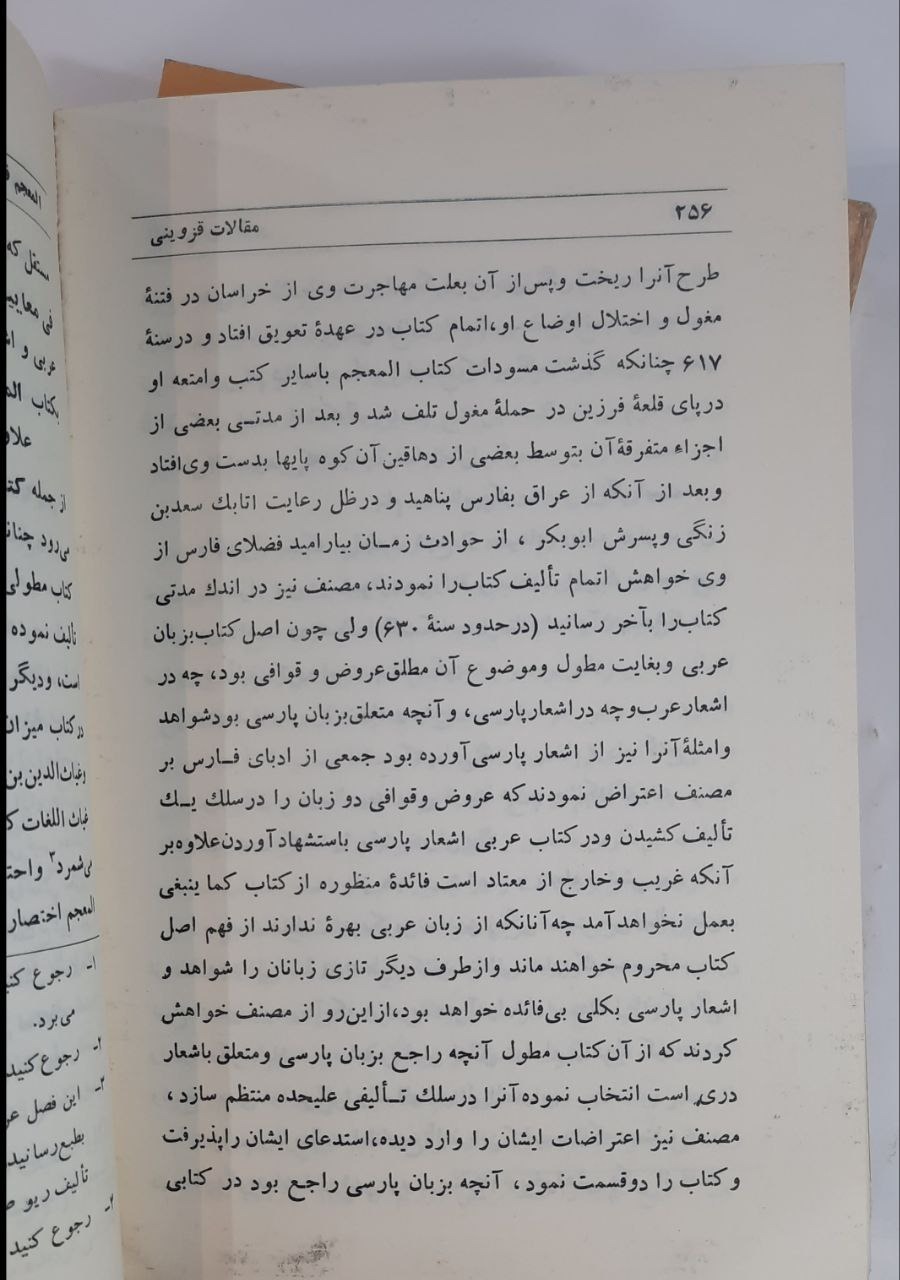 ۲۵۶ مقالات قزوینی
طرح آنرا ریخت وپس‌از آن بعلت مهاجرت وی از خراسان در فتنهٔ
مغول و اختلال اوضاع او،اتمام کتاب در عهدهٔ تعویق افتاد و درسنهٔ
۶۱۷ چنانکه گذشت مسودات کتاب المعجم باسایر کتب وامتعه او
درپای قلعهٔ فرزین در حملهٔ مغول تلف شد و بعد از مدتـی بعضی از
اجزاء متفرقهٔ‌آن بتوسط بعضی از دهاقین‌آن‌کوه پایها بدست وی‌افتاد
وبعد از آنکه از عراق بفارس پناهید و درظل رعایت اتابك سعدبن
زنگی وپسرش ابوبکر ، از حوادث زمـان بیارامید فضلای فارس از
وی خواهش اتمام تألیف کتاب‌را نمودند، مصنف نیز در اندك مدتی
کتاب‌را بآخر رسانید (درحدود سنهٔ ۶۳۰) ولی چون اصل کتاب‌بزبان
عربی وبغایت مطول وموضوع آن مطلق‌عروض و قوافی بود، چه در
اشعارعرب‌وچه دراشعارپارسی، وآنچه متعلق‌بزبان پارسی بودشواهد
وامثلهٔ‌آنرا نیز از اشعار پارسی‌آورده بود جمعی از ادبای فـارس بر
مصنف اعتراض نمودندکه عروض وقوافی دو زبان را درسلك یـك
تألیف‌کشیدن ودرکتاب عربی اشعار پارسی باستشهادآوردن‌علاوه‌بر
آنکه غریب وخارج از معتاد است فائدهٔ منظوره ازکتاب کما ینبغی
بعمل نخواهدآمد چه‌آنانکه از زبان عربی بهرهٔ ندارند از فهم اصل
کتاب محروم خواهند ماند وازطرف دیگر تازی زبانان را شواهد و
اشعار پارسی بکلی بی‌فائده خواهد بود،ازاین‌رو از مصنف خواهش
کردند که از آن کتاب مطول آنچه راجع بزبان پارسی ومتعلق باشعار
دری است انتخاب نموده‌آنرا درسلك تـألیفی علیحده منتظم سازد ،
مصنف نیز اعتراضات ایشان را وارد دیده،استدعای ایشان راپذیرفت
و کتاب را دوقسمت نمود ، آنچه بزبان پارسی راجع بود در کتابی
المعجم
مستقل که
فی معاییر
عربی و
بکتاب
از جمله
می‌رود
کتاب مطولی
تألیف نموده
است، ودیگر
درکتاب میزان
وغیاث‌الدین‌بن
غیاث اللغات
می‌شمرد۳
المعجم اختصار
۱- رجوع
می‌برد.
۲- رجوع‌کنید
۳- این فصل
بطبع‌رسانید
تألیف ریو
۴- رجوع کنید